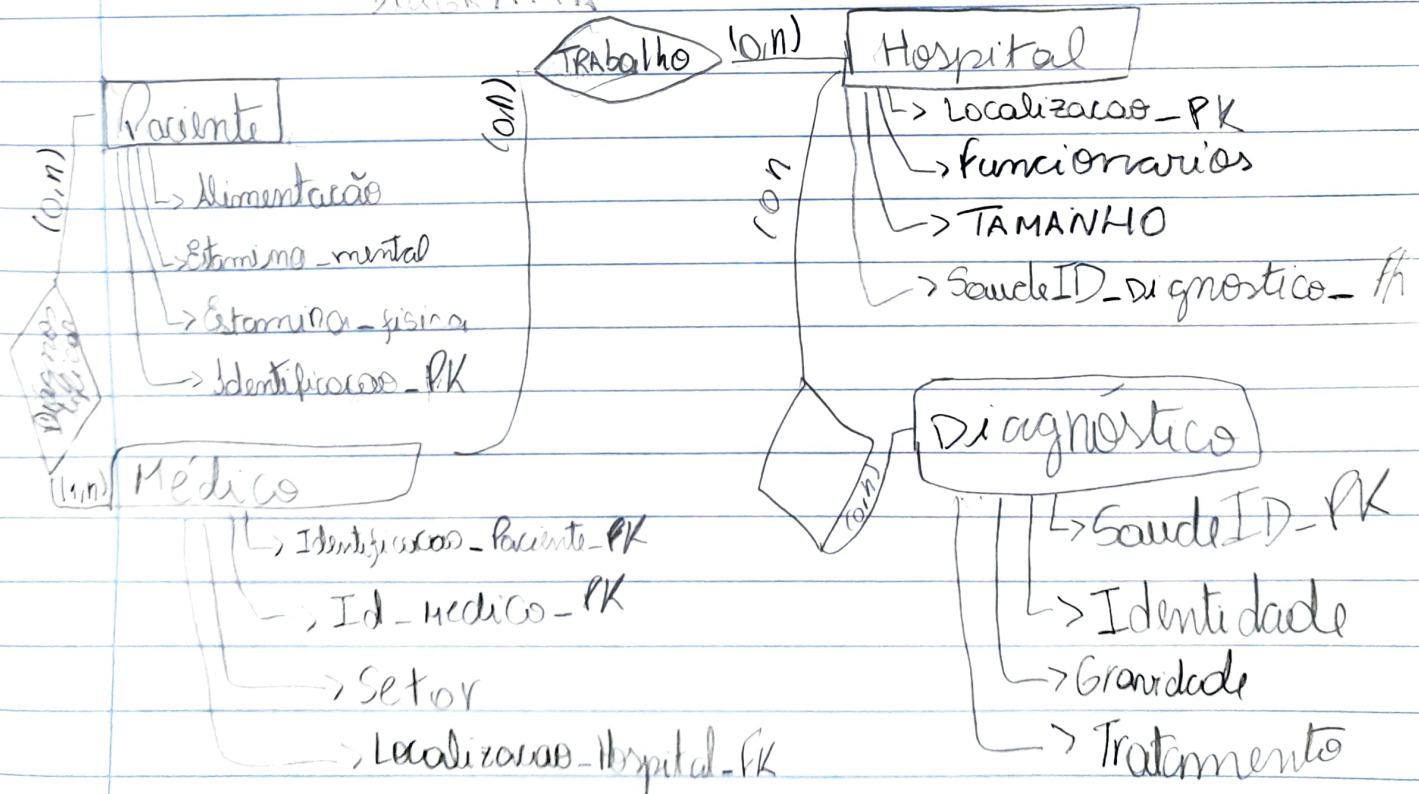 TRAbalho
(0,n)
Hospital
Localizacao_PK
Funcionarios
TAMANHO
SaudeID_Dignostico_fk
(0,n)
(0,n
Paciente
Alimentacão
Estamina_mental
Estamina_fisica
Identificacao_PK
(0,n)
(1,n)
Médico
Identificacao_Paciente_PK
Id_Medico_PK
Setor
Localizacao_Hospital_FK
(0,n)
Diagnóstico
SaudeID_PK
Identidade
Gravidade
Tratamento